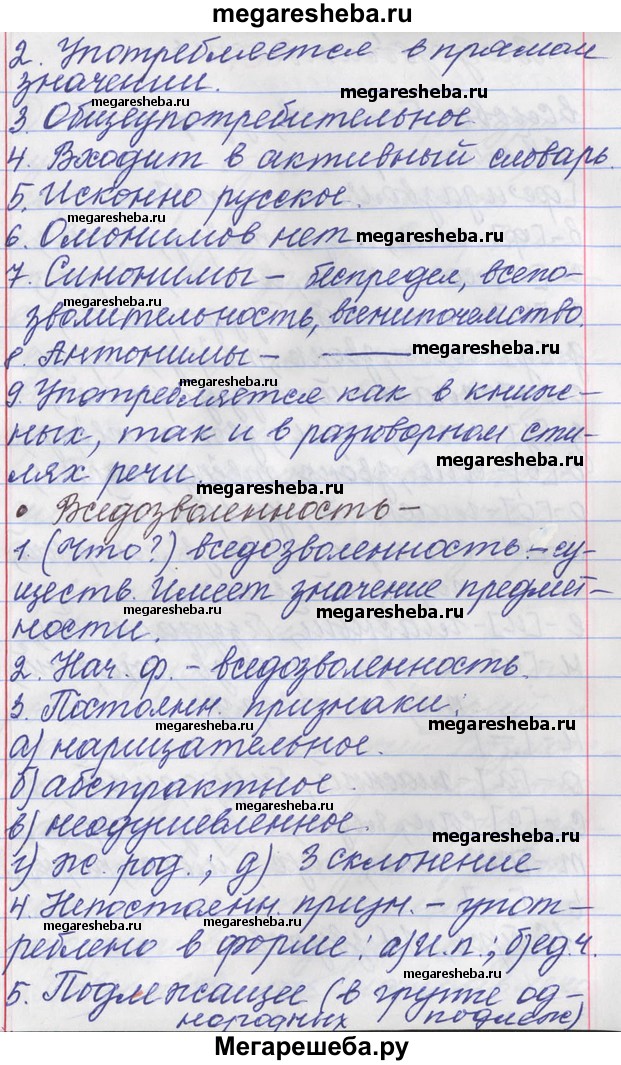 megaresheba.ru
2. Употребляется в прямом
значении.
megaresheba.ru
megaresheba.ru
3. Общеупотребительное
4. Входит в активный словарь.
5. Исконно русское.
megaresheba.ru
6. Омонимов нет
megaresheba.ru
7. Синонимы – беспредел, всепо-
megaresheba.ru
зволительность, всенипочемство.
8. Антонимы – ———
megaresheba.ru
megaresheba.ru
9. Употребляется как в книж-
ных, так и в разговорном сти-
лях речи.
megaresheba.ru
• Вседозволенность –
1. (Что?) вседозволенность – су-
ществ. Имеет значение предмет-
megaresheba.ru
megaresheba.ru
ности.
2. Нач. ф. – вседозволенность.
3. Постоянн. признаки:
megaresheba.ru
а) нарицательное.
megaresheba.ru
б) абстрактное.
megaresheba.ru
в) неодушевленное.
megaresheba.ru
г) ж. род.; д) 3 склонение
4. Непостоянн. призн. – упот-
megaresheba.ru
megaresheba.ru
реблено в форме: а) И.п.; б) ед.ч.
megaresheba.ru
5. Подлежащее (в группе од-
нородных подлеж)
Мегарешеба.ру